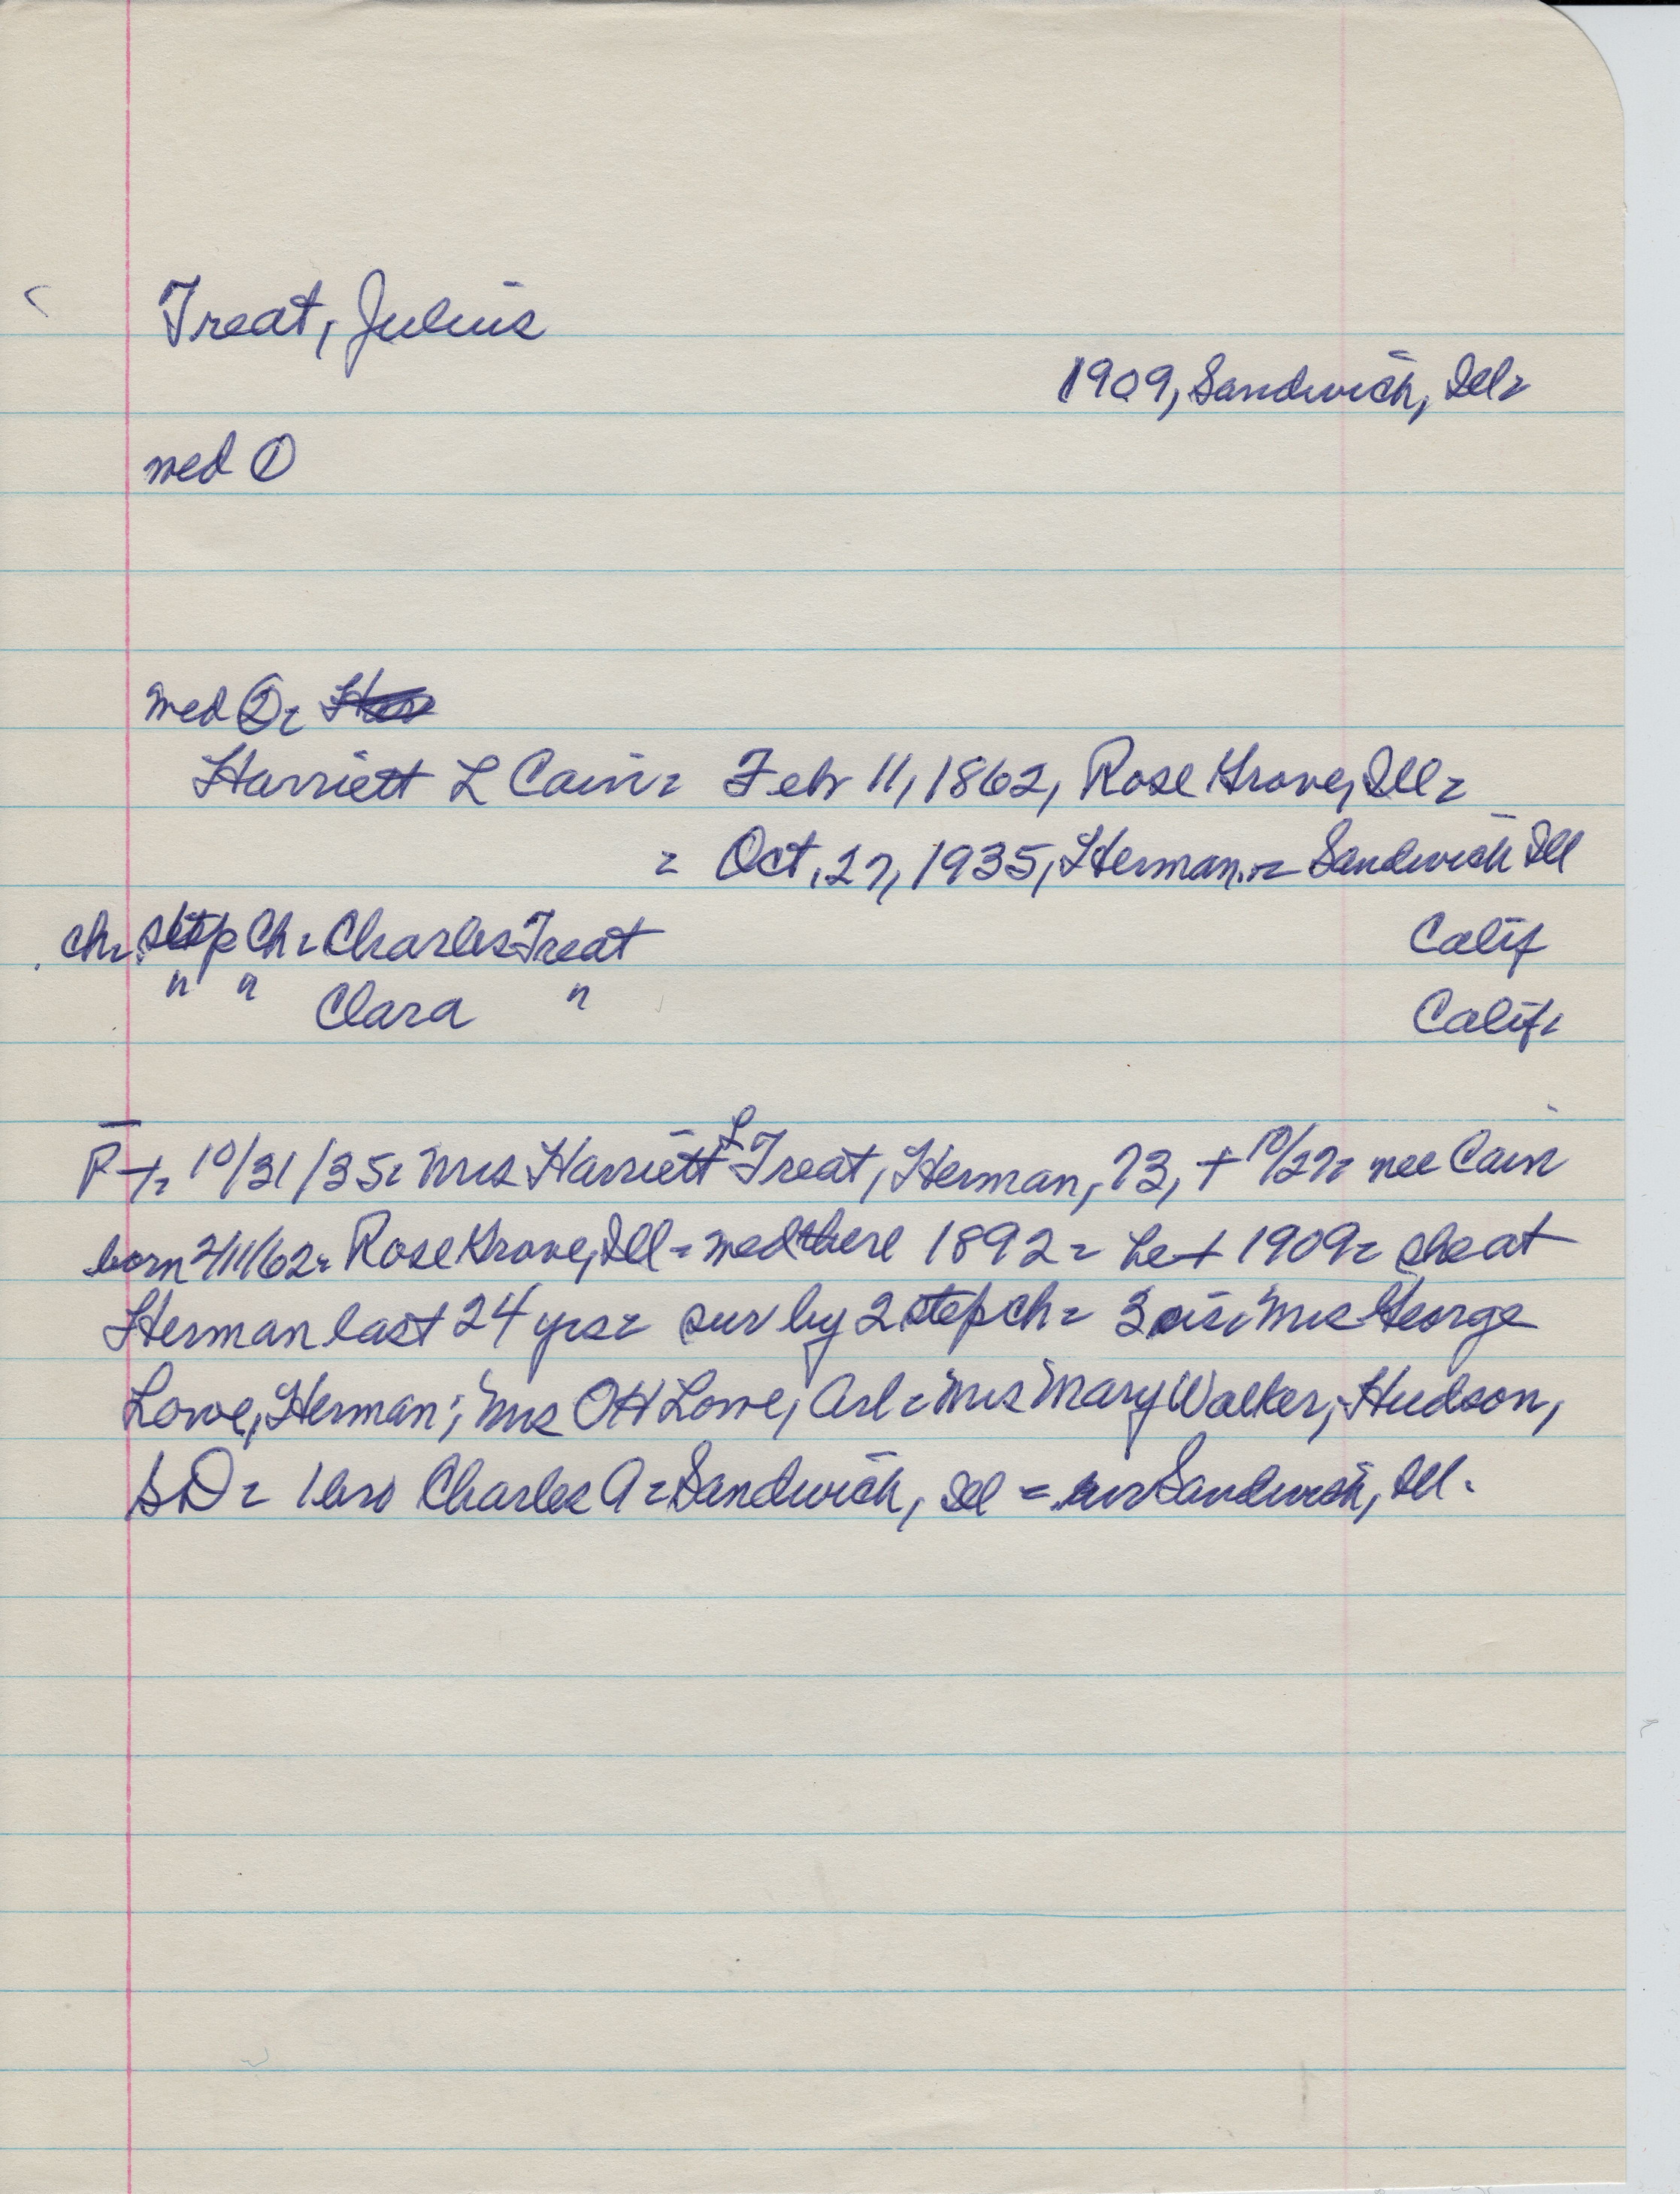 Treat, Julius
1909, Sandwich, Ill =
med ①
med ② =
Harriett L Cain = Feb 11, 1862, Rose Grove, Ill =
= Oct. 27, 1935, Herman = Sandwich Ill
ch = step Ch = Charles Treat Calif
" " Clara " Calif =
P+ = 10/31/35 = Mrs Harriett L Treat, Herman, 73, + 10/27 = nee Cain
born 2/11/62 = Rose Grove, Ill = med there 1892 = he + 1909 = she at
Herman last 24 yrs = sur by 2 step ch = 3 sis = Mrs George
Lowe, Herman; Mrs OH Lowe, Arl = Mrs Mary Walker, Hudson,
SD = 1 bro Charles A = Sandwich, Ill = Sandwich, Ill.